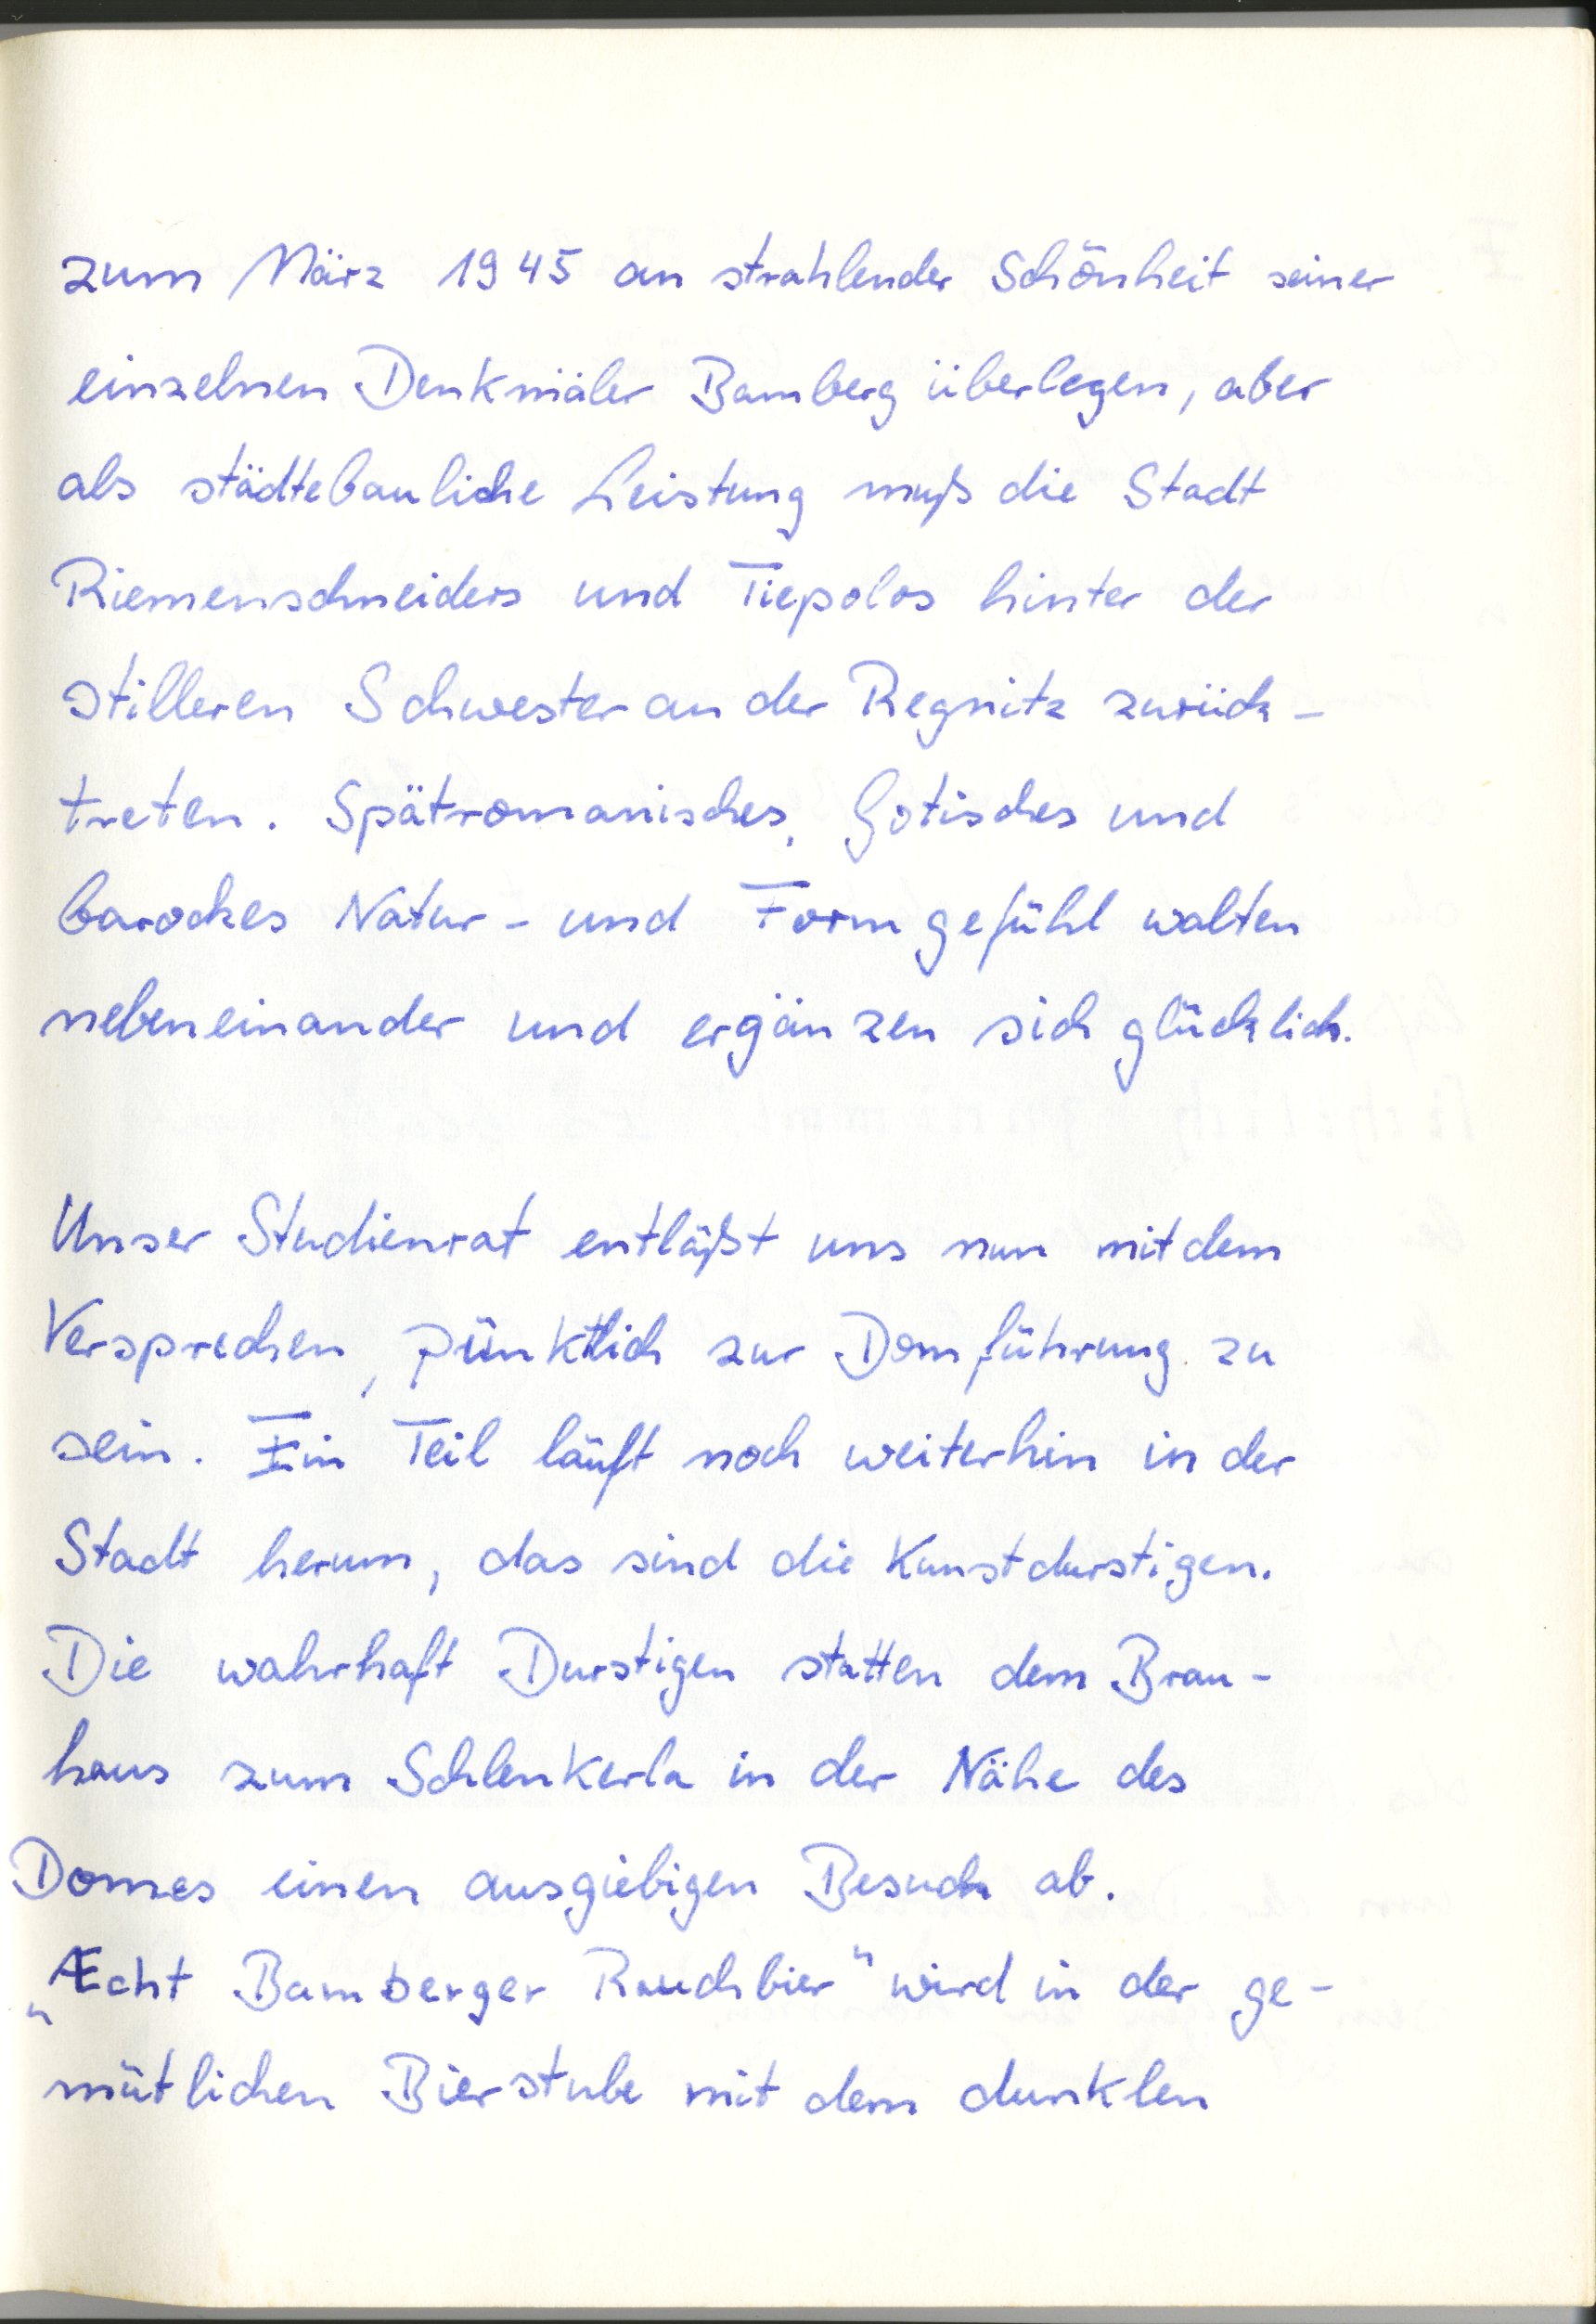 zum März 1945 an strahlender Schönheit seiner
einzelnen Denkmäler Bamberg überlegen, aber
als städtebauliche Leistung muß die Stadt
Riemenschneiders und Tiepolos hinter der
stilleren Schwester an der Regnitz zurück-
treten. Spätromanisches, Gotisches und
barockes Natur- und Formgefühl walten
nebeneinander und ergänzen sich glücklich.
Unser Studienrat entläßt uns nun mit dem
Versprechen, pünktlich zur Domführung zu
sein. Ein Teil läuft noch weiterhin in der
Stadt herum, das sind die Kunstdurstigen.
Die wahrhaft Durstigen statten dem Brau-
haus zum Schlenkerla in der Nähe des
Domes einen ausgiebigen Besuch ab.
„Æcht Bamberger Rauchbier" wird in der ge-
mütlichen Bierstube mit dem dunklen